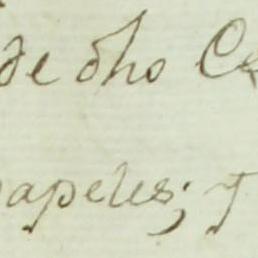 de dho
papeles; y